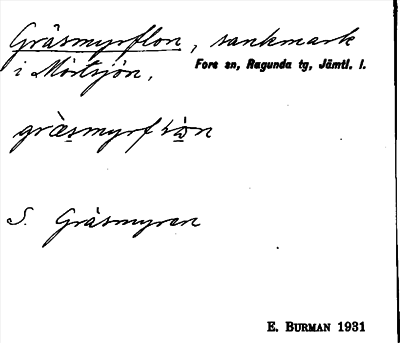 Gräsmyrflon, sankmark
i Mörtsjön, Fors sn, Ragunda tg, Jämtl. l.
S. Gräsmyren
E. BURMAN 1931